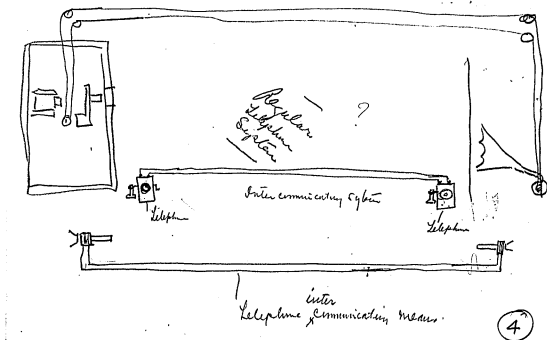 Regular
Telephone
System
?
Inter communicating System
Telephone
Telephone
inter
Telephone communication means.
4